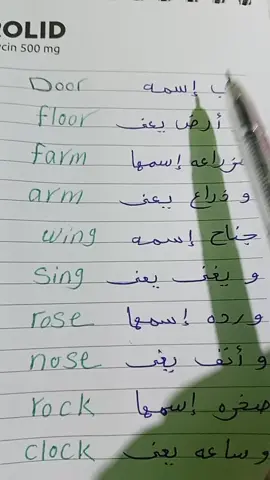 ROLID
ycin 500 mg
Door إسمه
floor أرض يعنى
farm مزراعه إسمها
arm و ذراع يعنى
wing جناح إسمه
sing و يغنى يعنى
rose ورده إسمها
nose و أنف يعنى
rock صخره إسمها
clock وساعه يعنى